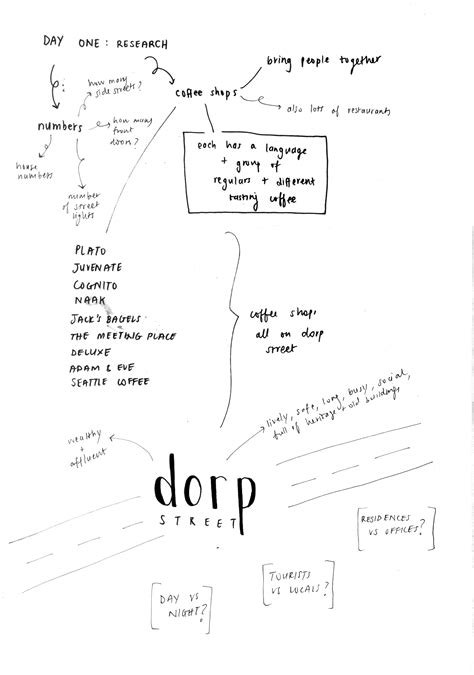 DAY ONE: RESEARCH
bring people together
how many
side streets?
coffee shops
also lots of restaurants
numbers
how many
front
doors?
house
numbers
each has a language
+ group of
regulars + different
tasting coffee
number
of street
lights
PLATO
JUVENATE
COGNITO
NAAK
JACK'S BAGELS
THE MEETING PLACE
DELUXE
ADAM & EVE
SEATTLE COFFEE
coffee shops
all on dorp
street
lively, safe, long, busy, social,
full of heritage + old buildings
wealthy
+
affluent
dorp
STREET
RESIDENCES
VS OFFICES?
TOURISTS
VS LOCALS?
DAY VS
NIGHT?